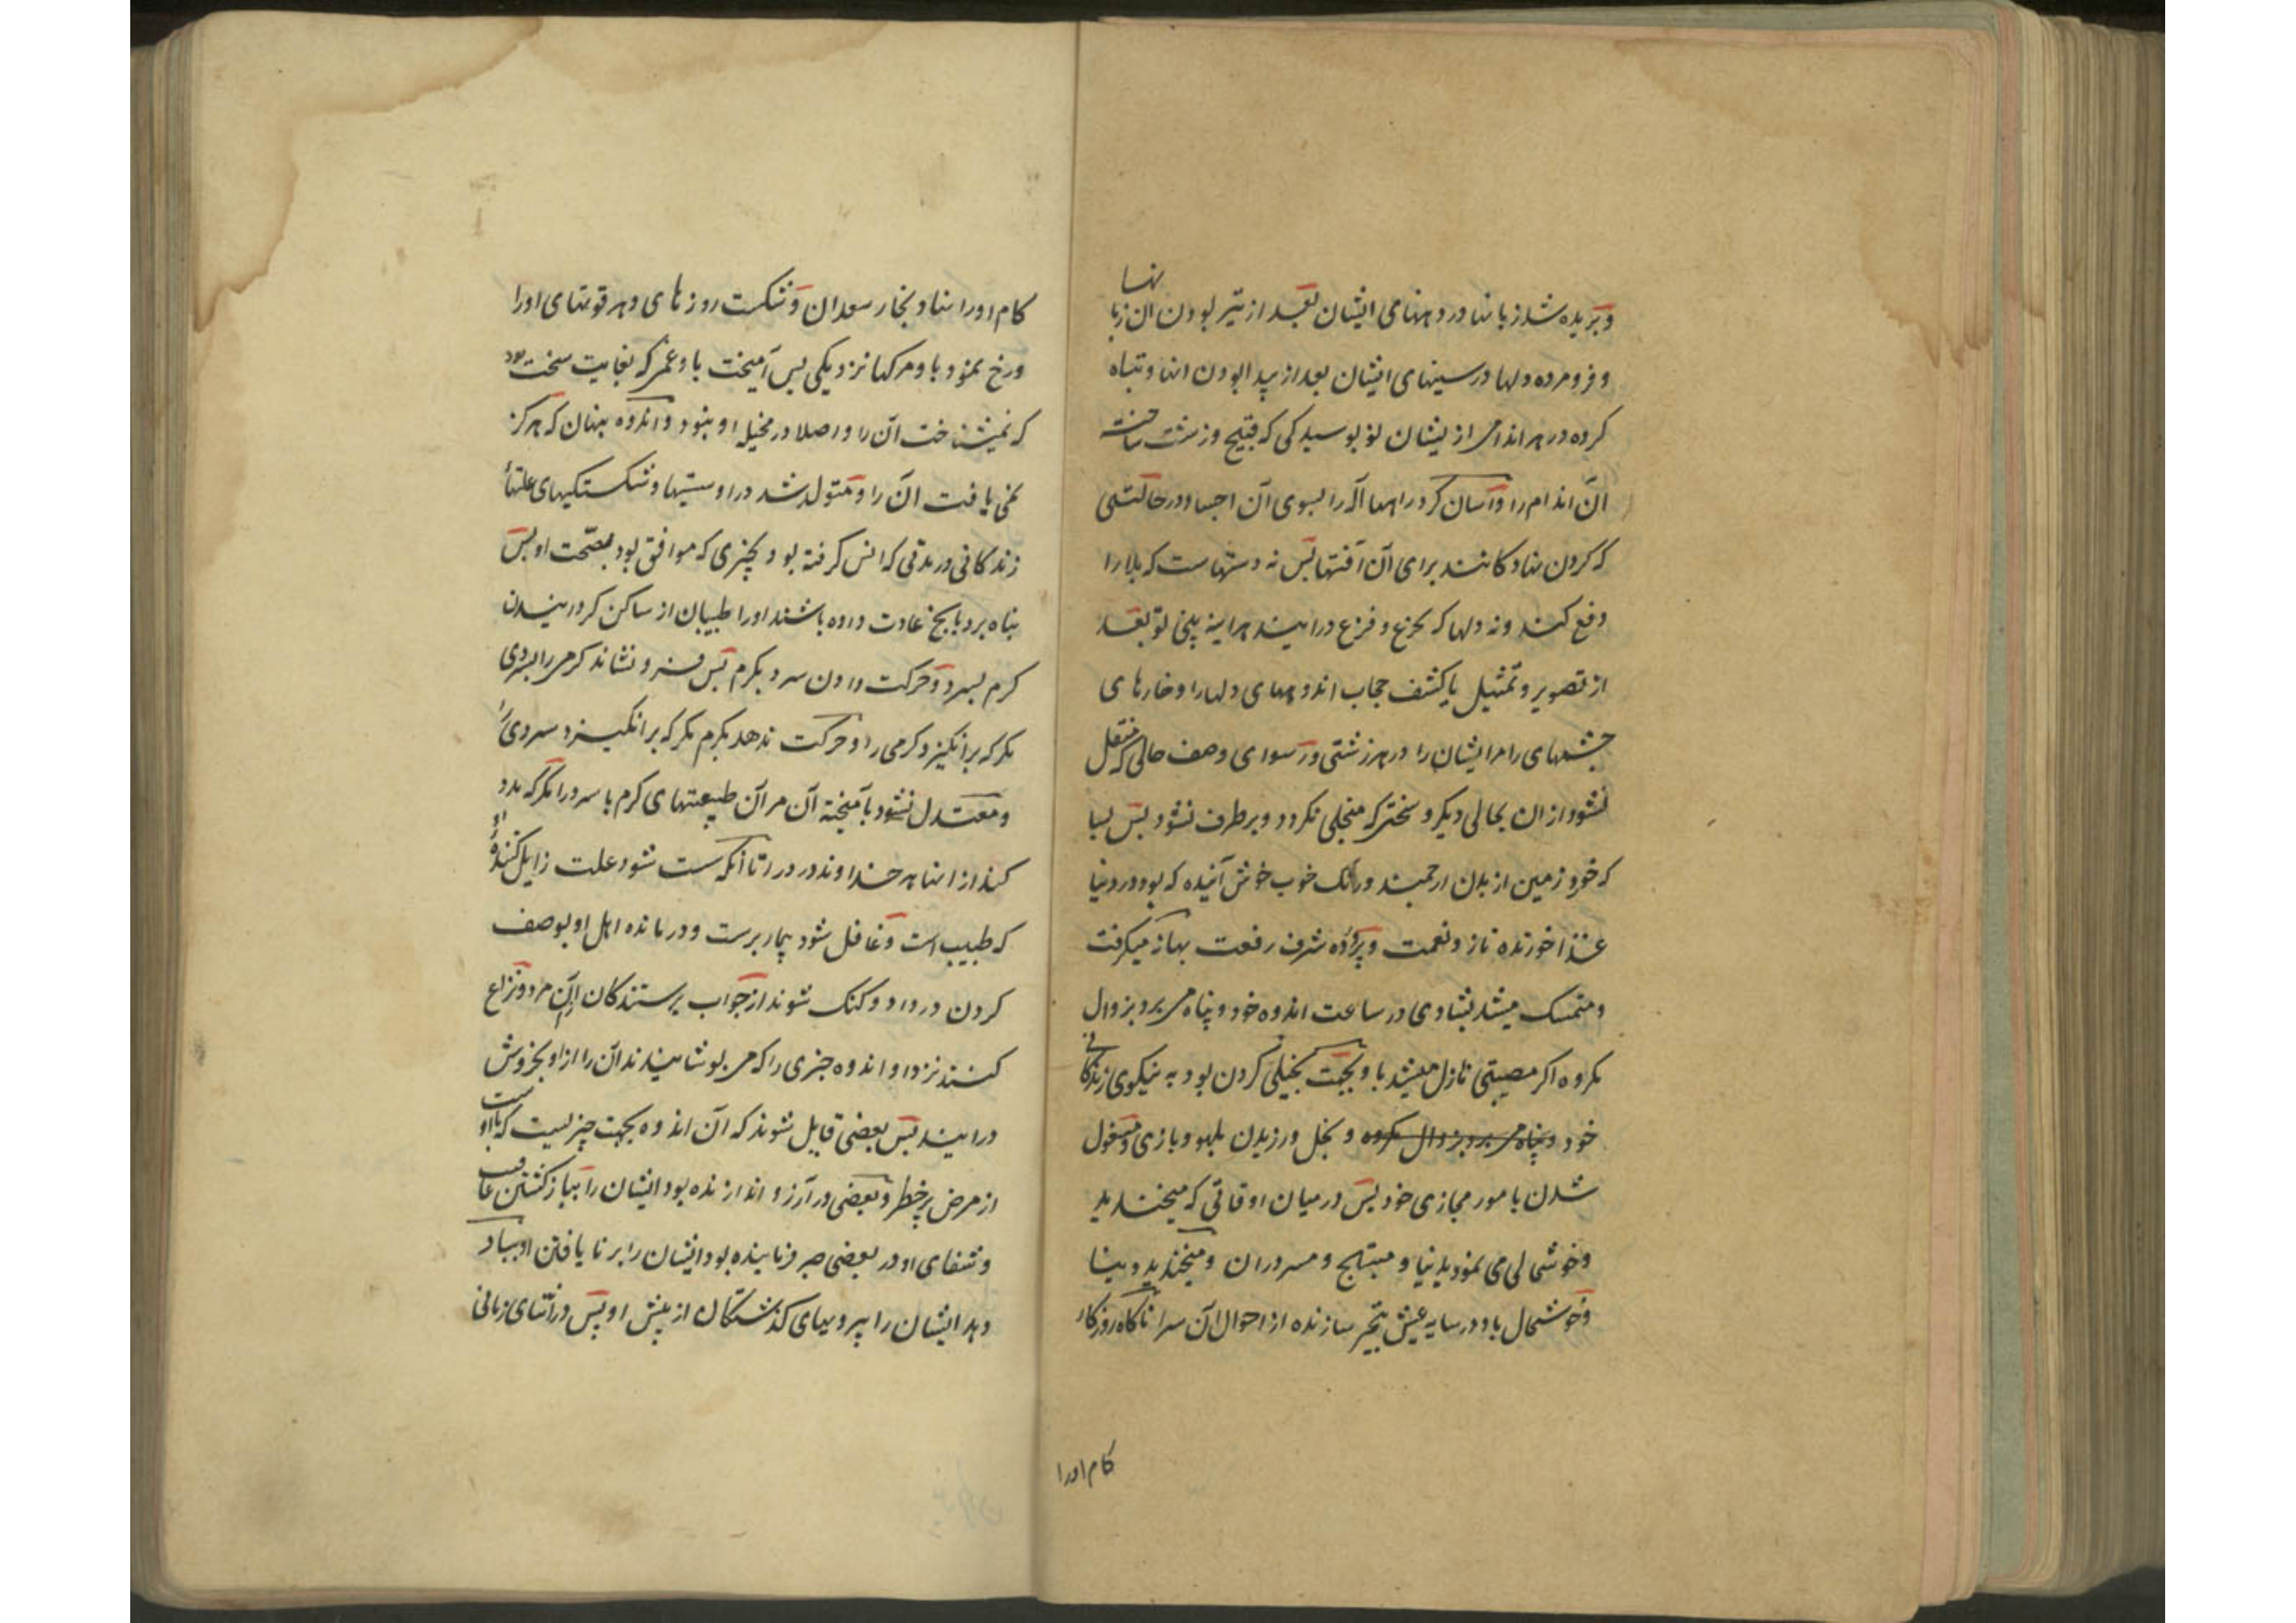 و بریده شد زبانها در دهنهای ایشان بعد از تیز بودن ان زبانها
و فرو مرده دلها در سینهای ایشان بعد از بیدار بودن انها و تباه
کرده در هر اندامی از یشان نو بوسیدکی که قبیح و زشت ساخته
آن اندام را و آسان کرد راهها آلة را بسوی آن اجساد در حالتی
که کردن نهادکانند برای آن آفتها پس نه دستهاست که بلا را
دفع کنند و نه دلها که بجزع و فزع درایند هراینه بینی تو بعد
از تصویر و تمثیل یا کشف حجاب اندوههای دلها را و خارهای
چشمهای را مر ایشان را در هر زشتی و رسوای وصف حالی که منتقل
نشود از ان بحالی دیکر و سختی که منجلی نکردد و بر طرف نشود پس بسا
که خورد زمین از بدن ارجمند و رنک خوب خوش آینده که بود در دنیا
غذا خورنده ناز و نعمت و پرورده شرف رفعت بهانه میکرفت
و متمسک میشد بشادی در ساعت اندوه خود و پناه می برد بزوال
مکروه اکر مصیبتی نازل میشد باو بجهت بخیلی کردن بود به نیکوی زندکانی
خود و پناه می برد بزوال مکروه و بخل ورزیدن بلهو و بازی و مشغول
شدن بامور مجازی خود پس در میان اوقاتی که میخندید
و خوشحالی می نمود بدنیا و مبتهج و مسرور ان و میخندید دنیا
و خوشحال باو در سایه عیش بتحیر سازنده از احوال آن سرا ناکاه روزکار
کام اورا
کام اورا نهاد بخار سعدان و شکست روزهای دهر قوتهای اورا
و رخ نمود باو مرکها نزدیکی پس آمیخت باو غمی که بغایت سخت بود
که نمیشناخت آن را و اصلا در مخیله او نبود و اندوه پنهان که هرکز
نمی یافت آن را و متولد شد در او سستیها و شکستکیهای علتهای
زندکانی در مدتی که انس کرفته بود بچیزی که موافق بود بصحت او پس
پناه برد بانچ عادت داده باشند اورا طبیبان از ساکن کردانیدن
کرم بسرد و حرکت دادن سرد بکرم پس فرو ننشاند کرمی را بسردی
مکر که برانکیزد کرمی را و حرکت ندهد بکرم مکر که برانکیزد سردی را
و معتدل نشود بآمیخته آن مر آن طبیعتهای کرم با سرد را مکر که مدد
کند از انها هر خداوند درد را تا آنکه سست شود علت زایل کننده او
که طبیب است و غافل شود بیمار پرست و درمانده اهل او بوصف
کردن درد او و کنک شوند از جواب پرستندکان این مرد و نزاع
کنند نزد او اندوه چیزی را که می پوشانیدند آن را از او بخروش
درایند پس بعضی قایل شوند که آن اندوه بجهت چیزیست که با اوست
از مرض پر خطر و بعضی در آرزو اندازنده بود ایشان را بباز کشتن عافیت
و شفای او و بعضی صبر فرماینده بود ایشان را بر نایافتن او بیاد
دهد ایشان را پیرویهای کذشتکان از پیش او پس در اثنای زمانی